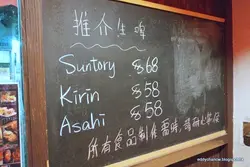 推介生啤
Suntory $68
Kirin $58
Asahi $58
所有食品制作需時,請耐心等候